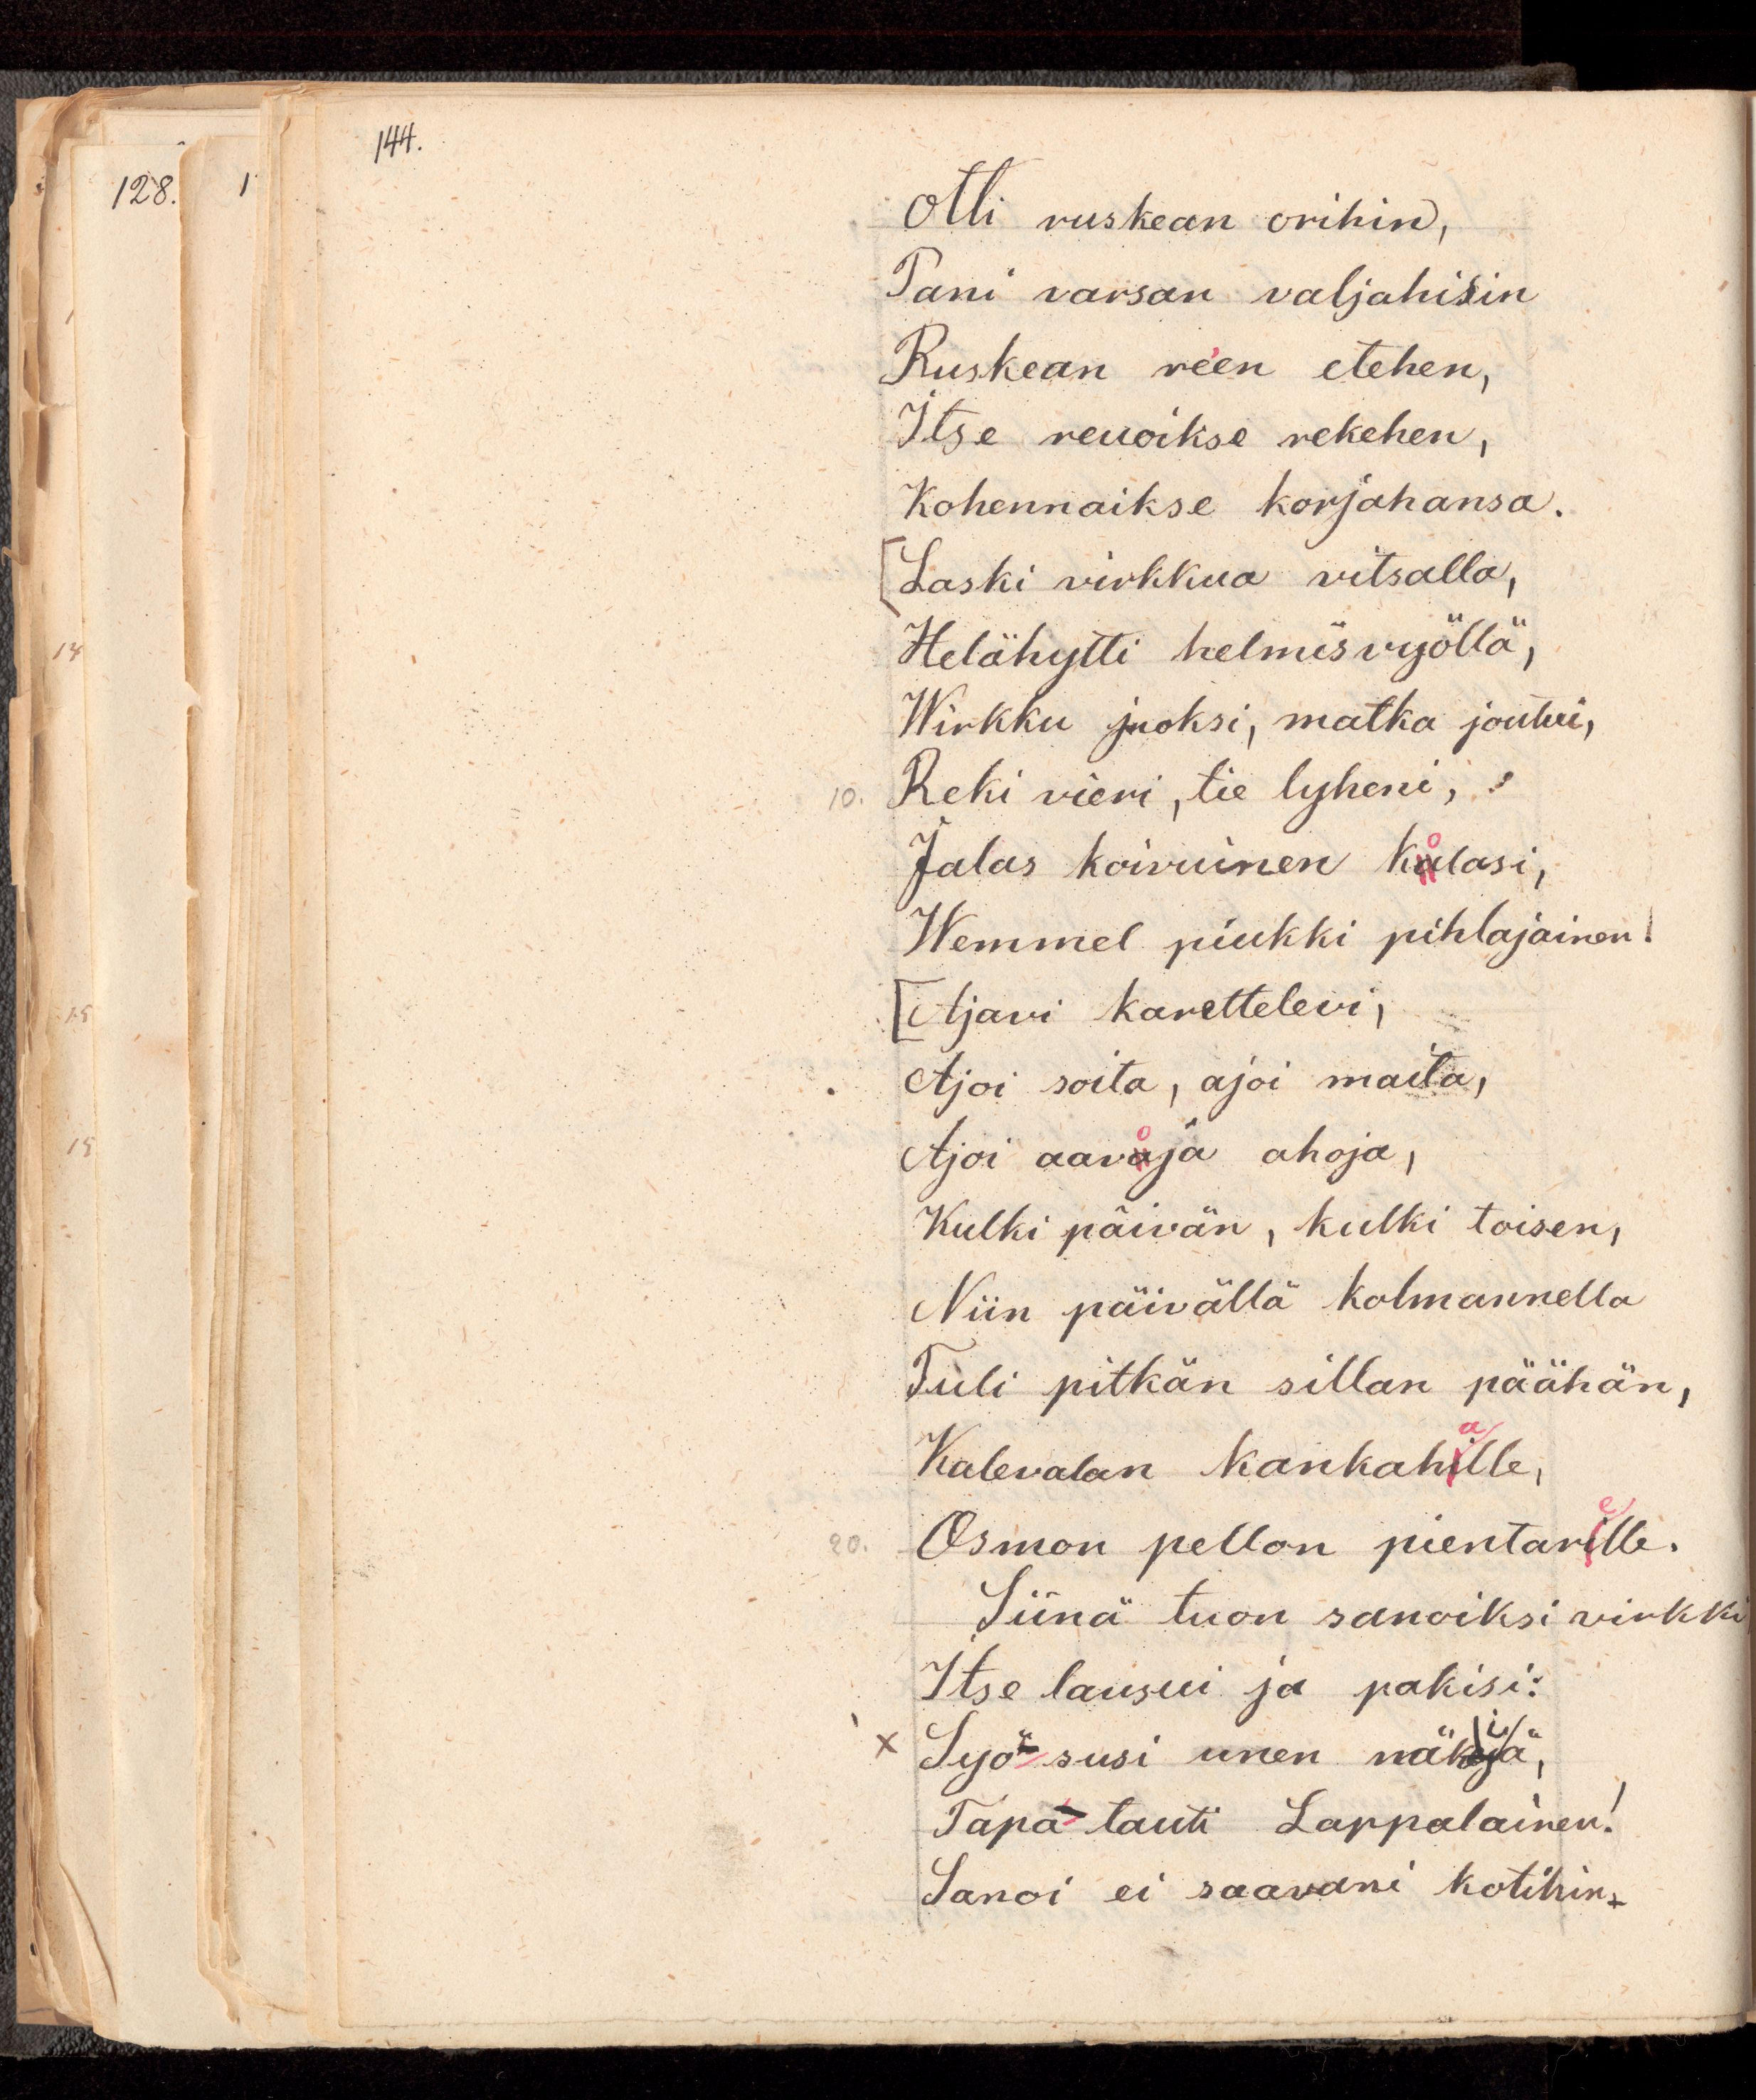 144.
128.
1
Otti ruskean orihin,
Pani varsan valjahisin
Ruskean re'en etehen,
Itse reuoikse rekehen,
Kohennaikse korjahansa.
[Laski virkkua vitsalla,
14
Helähytti helmisvyöllä,
Wirkku juoksi, matka joutui,
10. Reki vieri, tie lyheni,
o
Jalas koivuinen kalasi,
Wemmel piukki pihlajainen!
15
[Ajavi karettelevi,
Ajoi soita, ajoi maita,
o
15
Ajoi aavaja ahoja,
Kulki päivän, kulki toisen,
Niin päivällä kolmannella
Tuli pitkän sillan päähän,
a
Kalevalan kankahille,
e
20. Osmon pellon pientarille.
Siinä tuon sanoiksi virkki
Itse lausui ja pakisi:
i
x Syö susi unen näkijä,
Tapa tauti Lappalainen!
Sanoi ei saavani kotihin